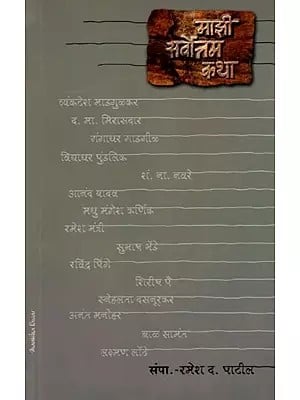 माझी
सर्वोत्तम
कथा
व्यंकटेश माडगुळकर
द. मा. मिरासदार
गंगाधर गाडगीळ
विद्याधर पुंडलिक
शं. ना. नवरे
आनंद यादव
मधु मंगेश कर्णिक
रमेश मंत्री
सुभाष भेंडे
रविंद्र पिंगे
शिरीष पै
स्नेहलता दसनूरकर
अनंत मनोहर
बाळ सामंत
लक्ष्मण लोंढे
संपा.-रमेश द. पाटील